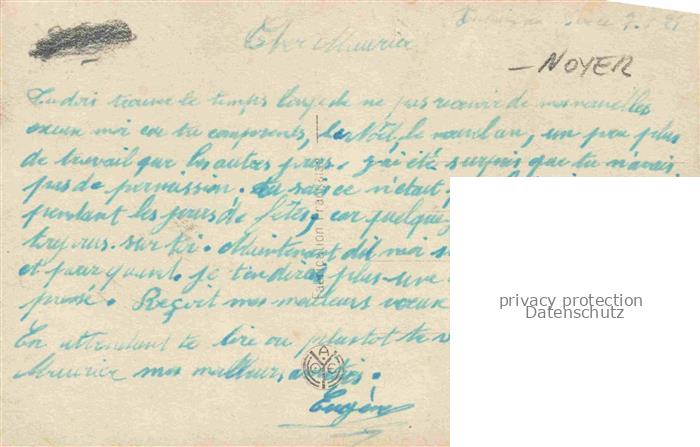 Cher Maurice
- NOYER
Tu dois trouver le temps long de ne pas recevoir de mes nouvelles
excuse moi car tu comprends, la Noël, le nouvel an, un peu plus
de travail que les autres jours. j'ai été surpris que tu n'avais
pas de permission. tu sais ce n'était
pendant les jours de fêtes, car quelque
toujours sur toi. Maintenant dit moi
et pour quand. je te dirai plus
pressé. Reçoit mes meilleurs vœux
En attendant de te lire ou plustot te
Maurice mes meilleurs amitiés.
Eugène
Fabrication Française
privacy protection
Datenschutz